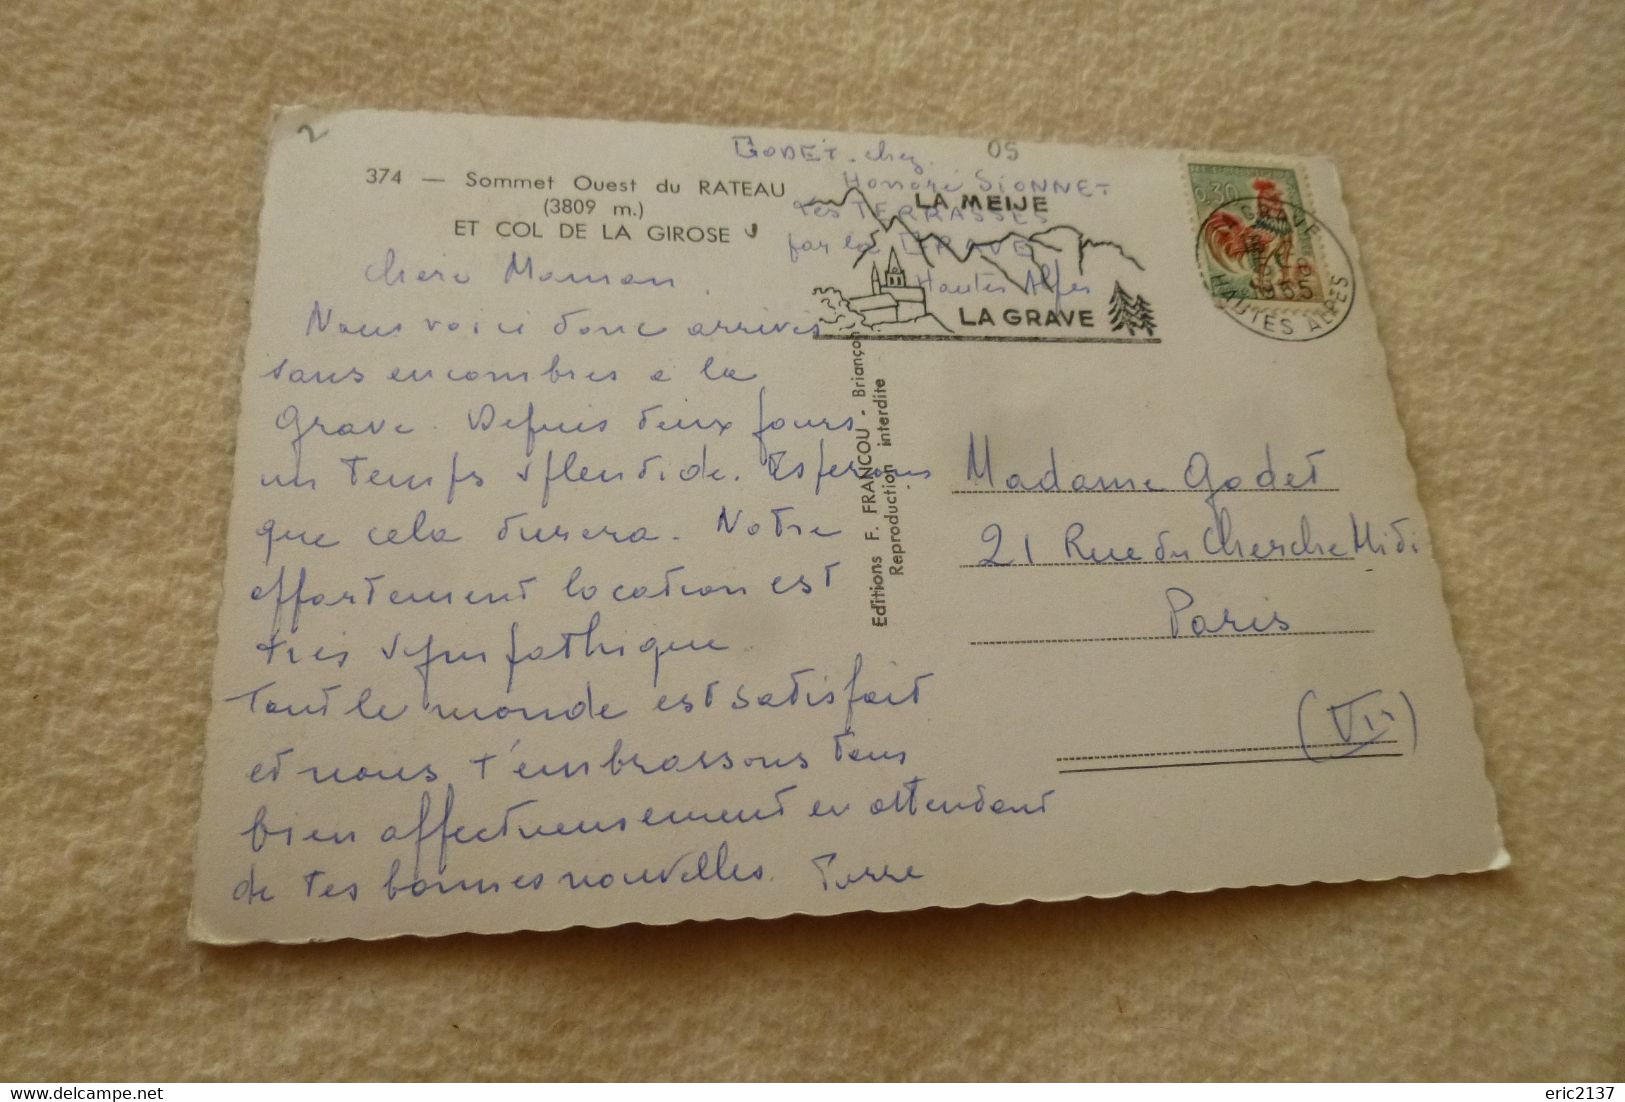 2
374 — Sommet Ouest du RATEAU
(3809 m.)
ET COL DE LA GIROSE
GODET. chez
Honoré SIONNET
les TERRASSES
par la GRAVE
Hautes Alpes
05
LA MEIJE
LA GRAVE
0,30
LA GRAVE
HAUTES ALPES
Chère Maman.
Nous voici donc arrivés
sans encombres a la
Grave. Depuis deux jours
un temps splendide. Esperons
que cela durera. Notre
appartement location est
très sympathique
Tout le monde est satisfait
et nous t'embrassons tous
bien affectueusement en attendant
de tes bonnes nouvelles. Pierre
Editions F. FRANCOU - Briançon
Reproduction interdite
Madame Godet
21 Rue du Cherche Midi
Paris
(VI)
eric2137